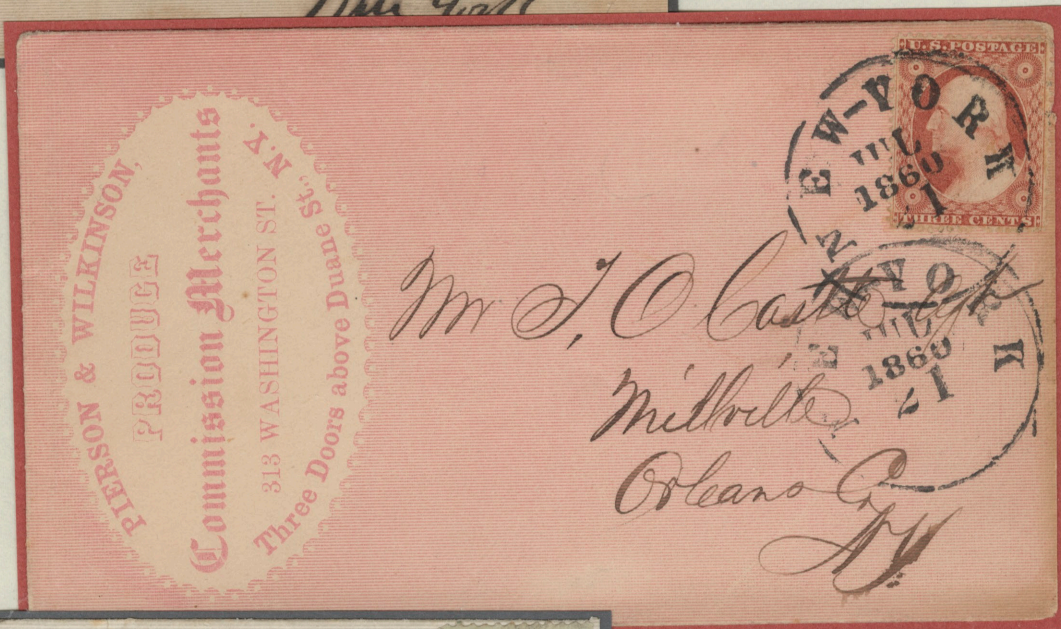 New York
PIERSON & WILKINSON,
PRODUCE
Commission Merchants
313 WASHINGTON ST.
Three Doors above Duane St., N.Y.
U.S. POSTAGE
THREE CENTS
NEW-YORK
JUL
21
1860
NEW-YORK
JUL
21
1860
Mr T, O Castle
Millville
Orleans Co
NY